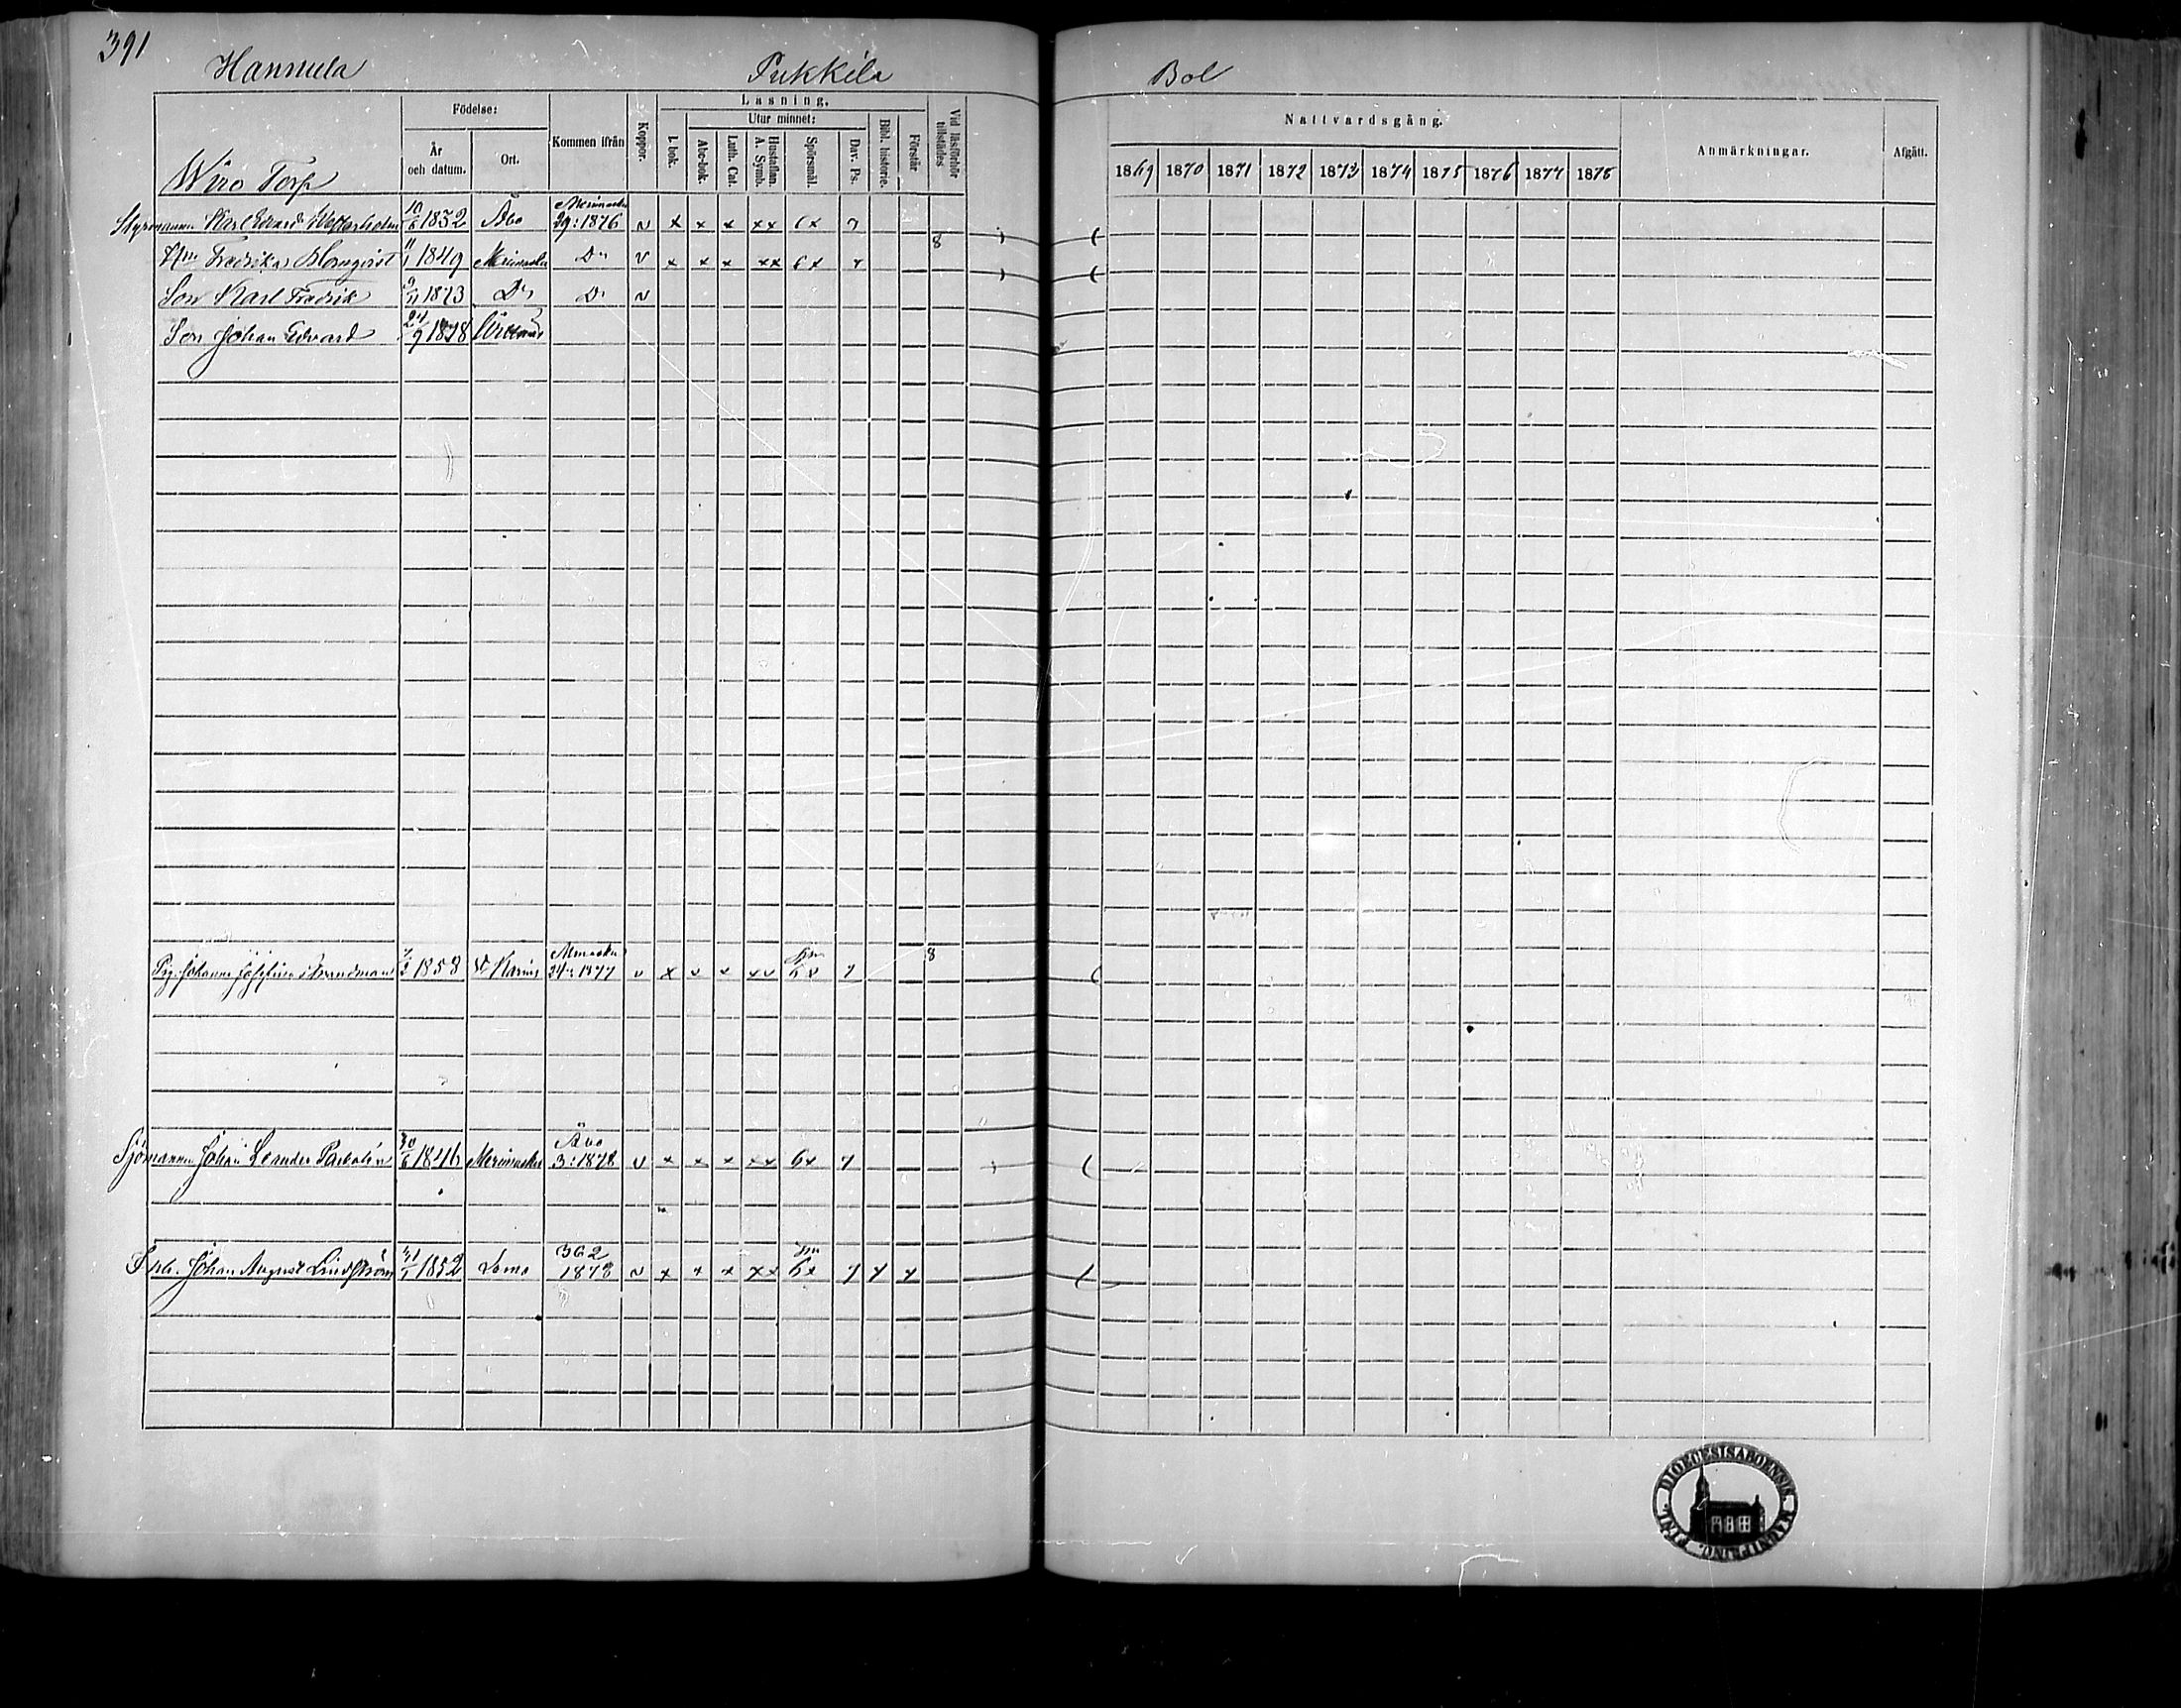 391
Hannula Pukkila Bol
Födelse: Kommen ifrån Koppor. Läsning. Vid läsförhör tillstädes Nattvardsgång. Anmärkningar. Afgått.
År och datum. Ort. I. bok. Utur minnet: Bibl. historie. Förstår
Abc-bok. Luth. Cat. Hustaflan. A. Symb. Spörsmål. Dav. Ps.
1869 1870 1871 1872 1873 1874 1875 1876 1877 1878
Wiro Torp
Styrmannen Karl Edvard 10/6 1832 Åbo Merimasku 29: 1876 v x x x xx 6x 7
Hu Fredrika Blomqvist 11/1 1849 Merimasku Do v x x x xx 6x 7 8
Son Karl Fredrik 9/11 1873 Do Do v
Son Johan Edvard 24/9 1878
Pig. Johanna Josefina 1858 St Karins 24: 1877 v x v v xv 6v 7 8
Sjömannen Johan Leander 30/6 1846 Merimasku Åbo 3: 1878 v x x x xx 6x 7
Johan August Lindström 31/1 1852 Lemo 362 1878 v x x x xx 6x 7 7 7
DIOECESIS ABOENSIS. MAGNI PRINC. FINL.